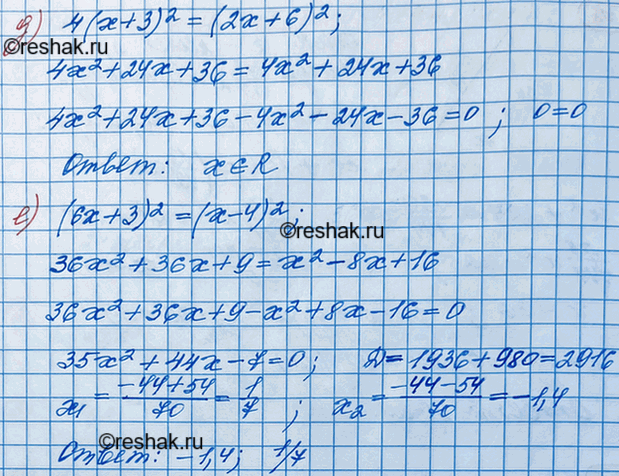 д) 4(x+3)² = (2x+6)²;
©reshak.ru
4x²+24x+36 = 4x²+24x+36
4x²+24x+36-4x²-24x-36=0 ; 0=0
Ответ: x∈R
е) (6x+3)² = (x-4)²;
©reshak.ru
36x²+36x+9 = x²-8x+16
36x²+36x+9-x²+8x-16=0
35x²+44x-7=0; D=1936+980=2916
x₁ = (-44+54)/70 = 1/7 ; x₂ = (-44-54)/70 = -1,4
©reshak.ru
Ответ: -1,4; 1/7